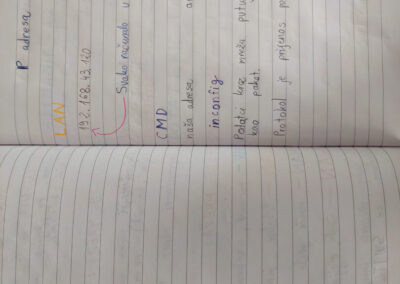 P adresa
LAN
192.168.43.120
Svako računalo u
CMD
naša adresa
inconfig
Podatci kroz mrežu putuj
kao paket.
Protokol je prijenos po